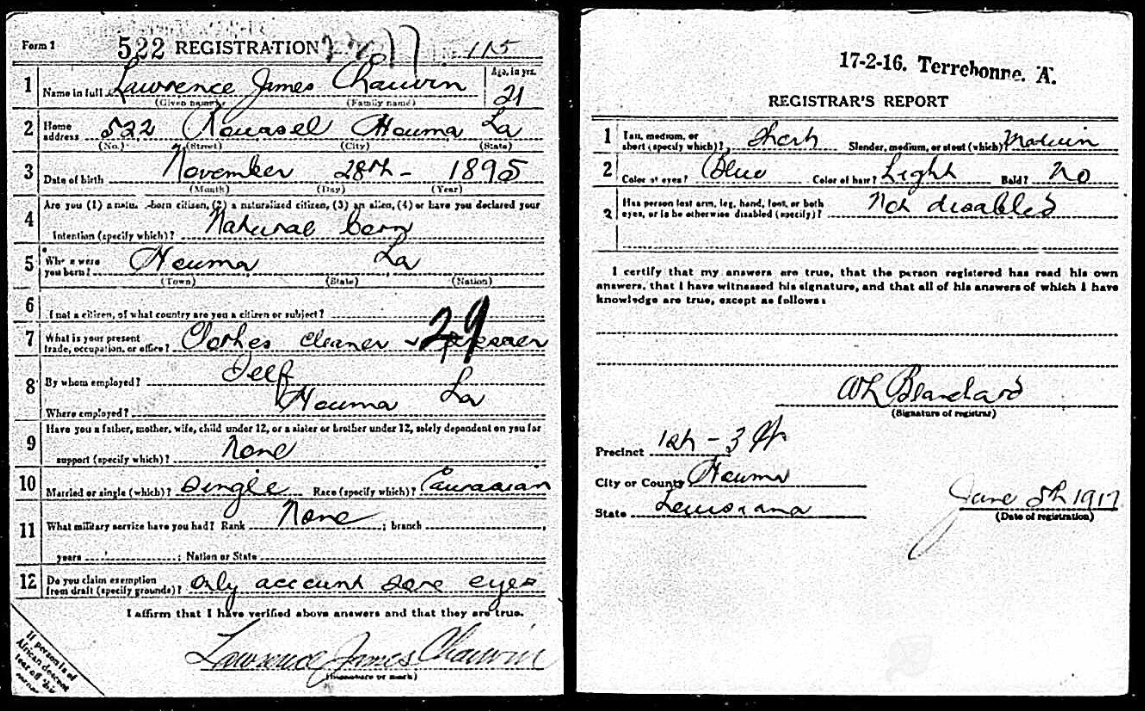 Form 1
522 REGISTRATION 115
1 Name in full Lawrence James Chauvin Age, in yrs. 21
(Given name) (Family name)
2 Home address 522 Roussel Houma La
(No.) (Street) (City) (State)
3 Date of birth November 28th - 1895
(Month) (Day) (Year)
4 Are you (1) a natural-born citizen, (2) a naturalized citizen, (3) an alien, (4) or have you declared your
intention (specify which)? Natural born
5 Where were you born? Houma La
(Town) (State) (Nation)
6 If not a citizen, of what country are you a citizen or subject?
7 What is your present trade, occupation, or office? Clothes cleaner & presser
29
8 By whom employed? Self
Where employed? Houma La
9 Have you a father, mother, wife, child under 12, or a sister or brother under 12, solely dependent on you for
support (specify which)? None
10 Married or single (which)? Single Race (specify which)? Caucasian
11 What military service have you had? Rank None ; branch
years ; Nation or State
12 Do you claim exemption from draft (specify grounds)? Only account sore eyes
I affirm that I have verified above answers and that they are true.
Lawrence James Chauvin
(Signature or mark)
If person is of
African descent
tear off this
corner
17-2-16. Terrebonne. A.
REGISTRAR'S REPORT
1 Tall, medium, or short (specify which)? Short Slender, medium, or stout (which)? Medium
2 Color of eyes? Blue Color of hair? Light Bald? No
3 Has person lost arm, leg, hand, foot, or both
eyes, or is he otherwise disabled (specify)? Not disabled
I certify that my answers are true, that the person registered has read his own
answers, that I have witnessed his signature, and that all of his answers of which I have
knowledge are true, except as follows:
WL Blanchard
(Signature of registrar)
Precinct 1st - 3
City or County Houma
State Louisiana
June 5th 1917
(Date of registration)